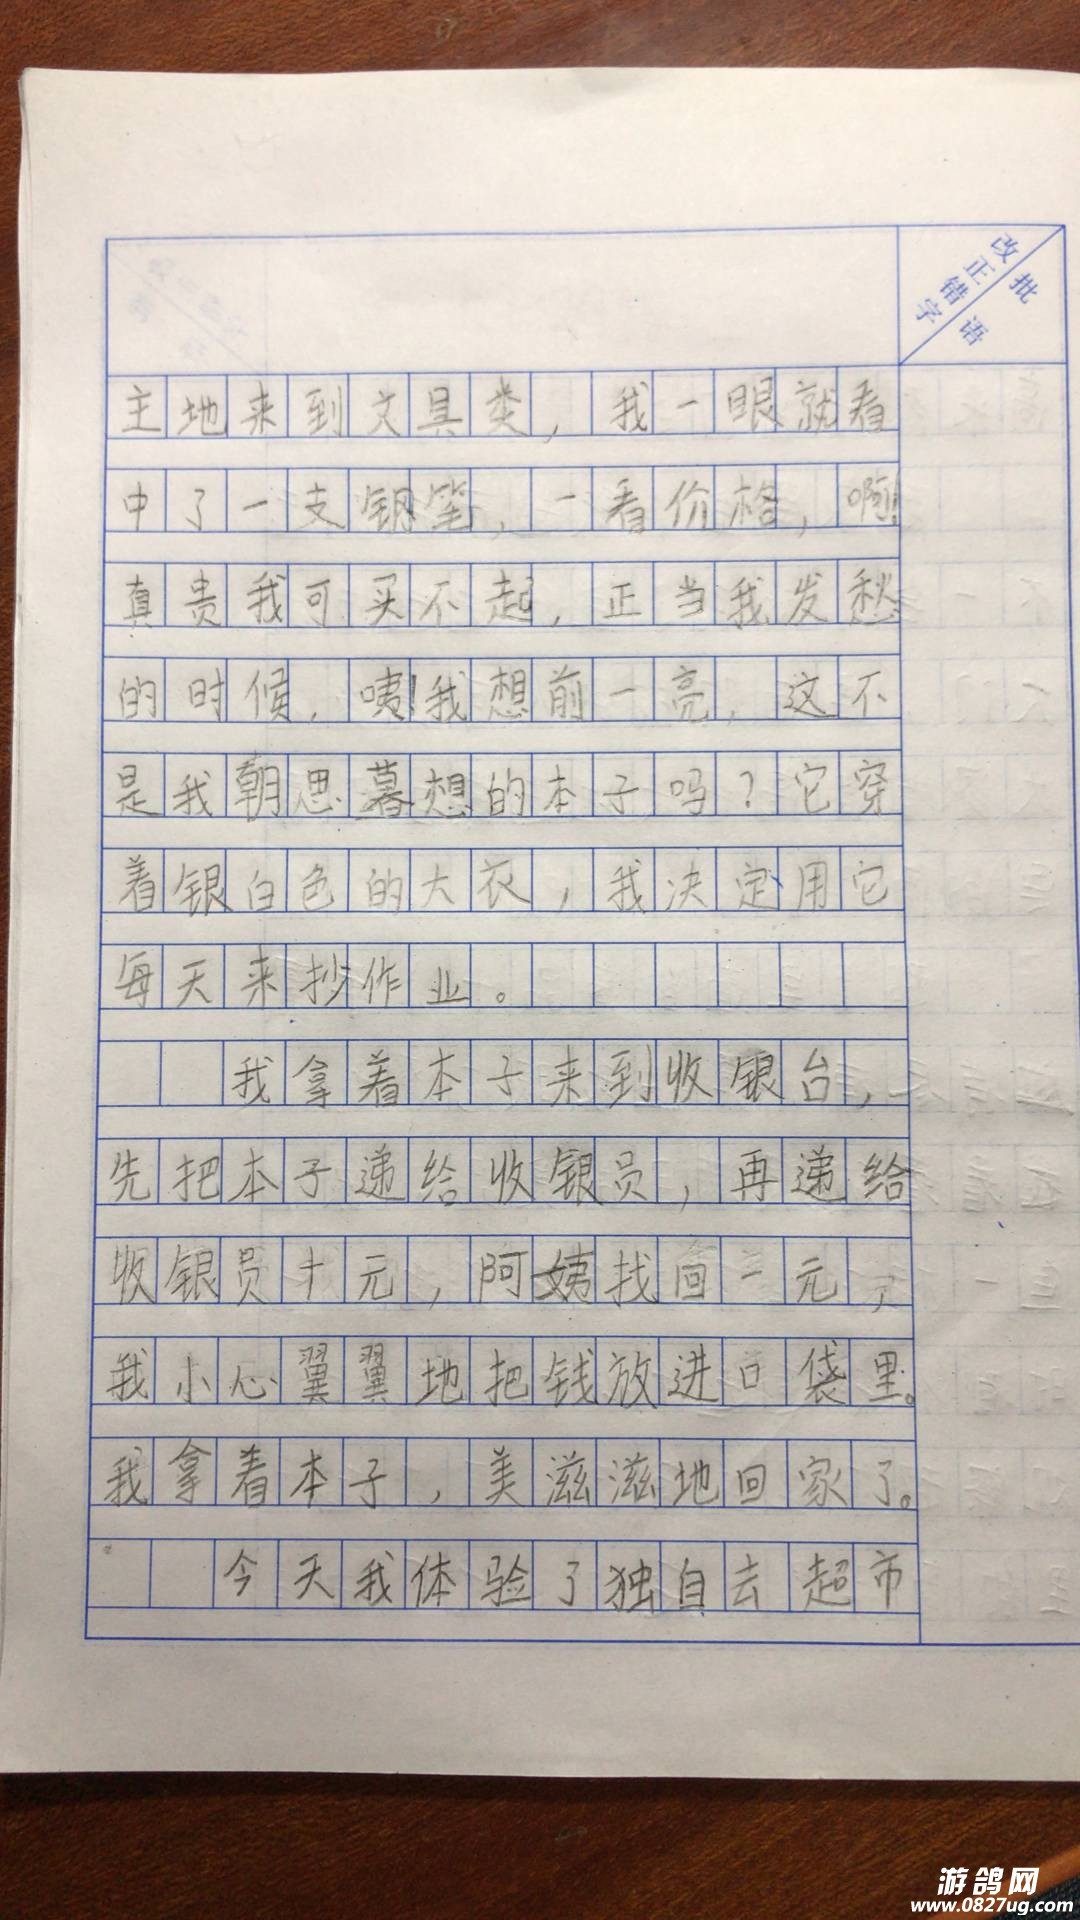 改正错字
批语
主地来到文具类，我一眼就看
中了一支钢笔，一看价格，啊！
真贵我可买不起，正当我发愁
的时候，咦！我想前一亮，这不
是我朝思暮想的本子吗？它穿
着银白色的大衣，我决定用它
每天来抄作业。
我拿着本子来到收银台，
先把本子递给收银员，再递给
收银员十元，阿姨找回一元，
我小心翼翼地把钱放进口袋里。
我拿着本子，美滋滋地回家了。
今天我体验了独自去超市
游鸽网
www.0827ug.com